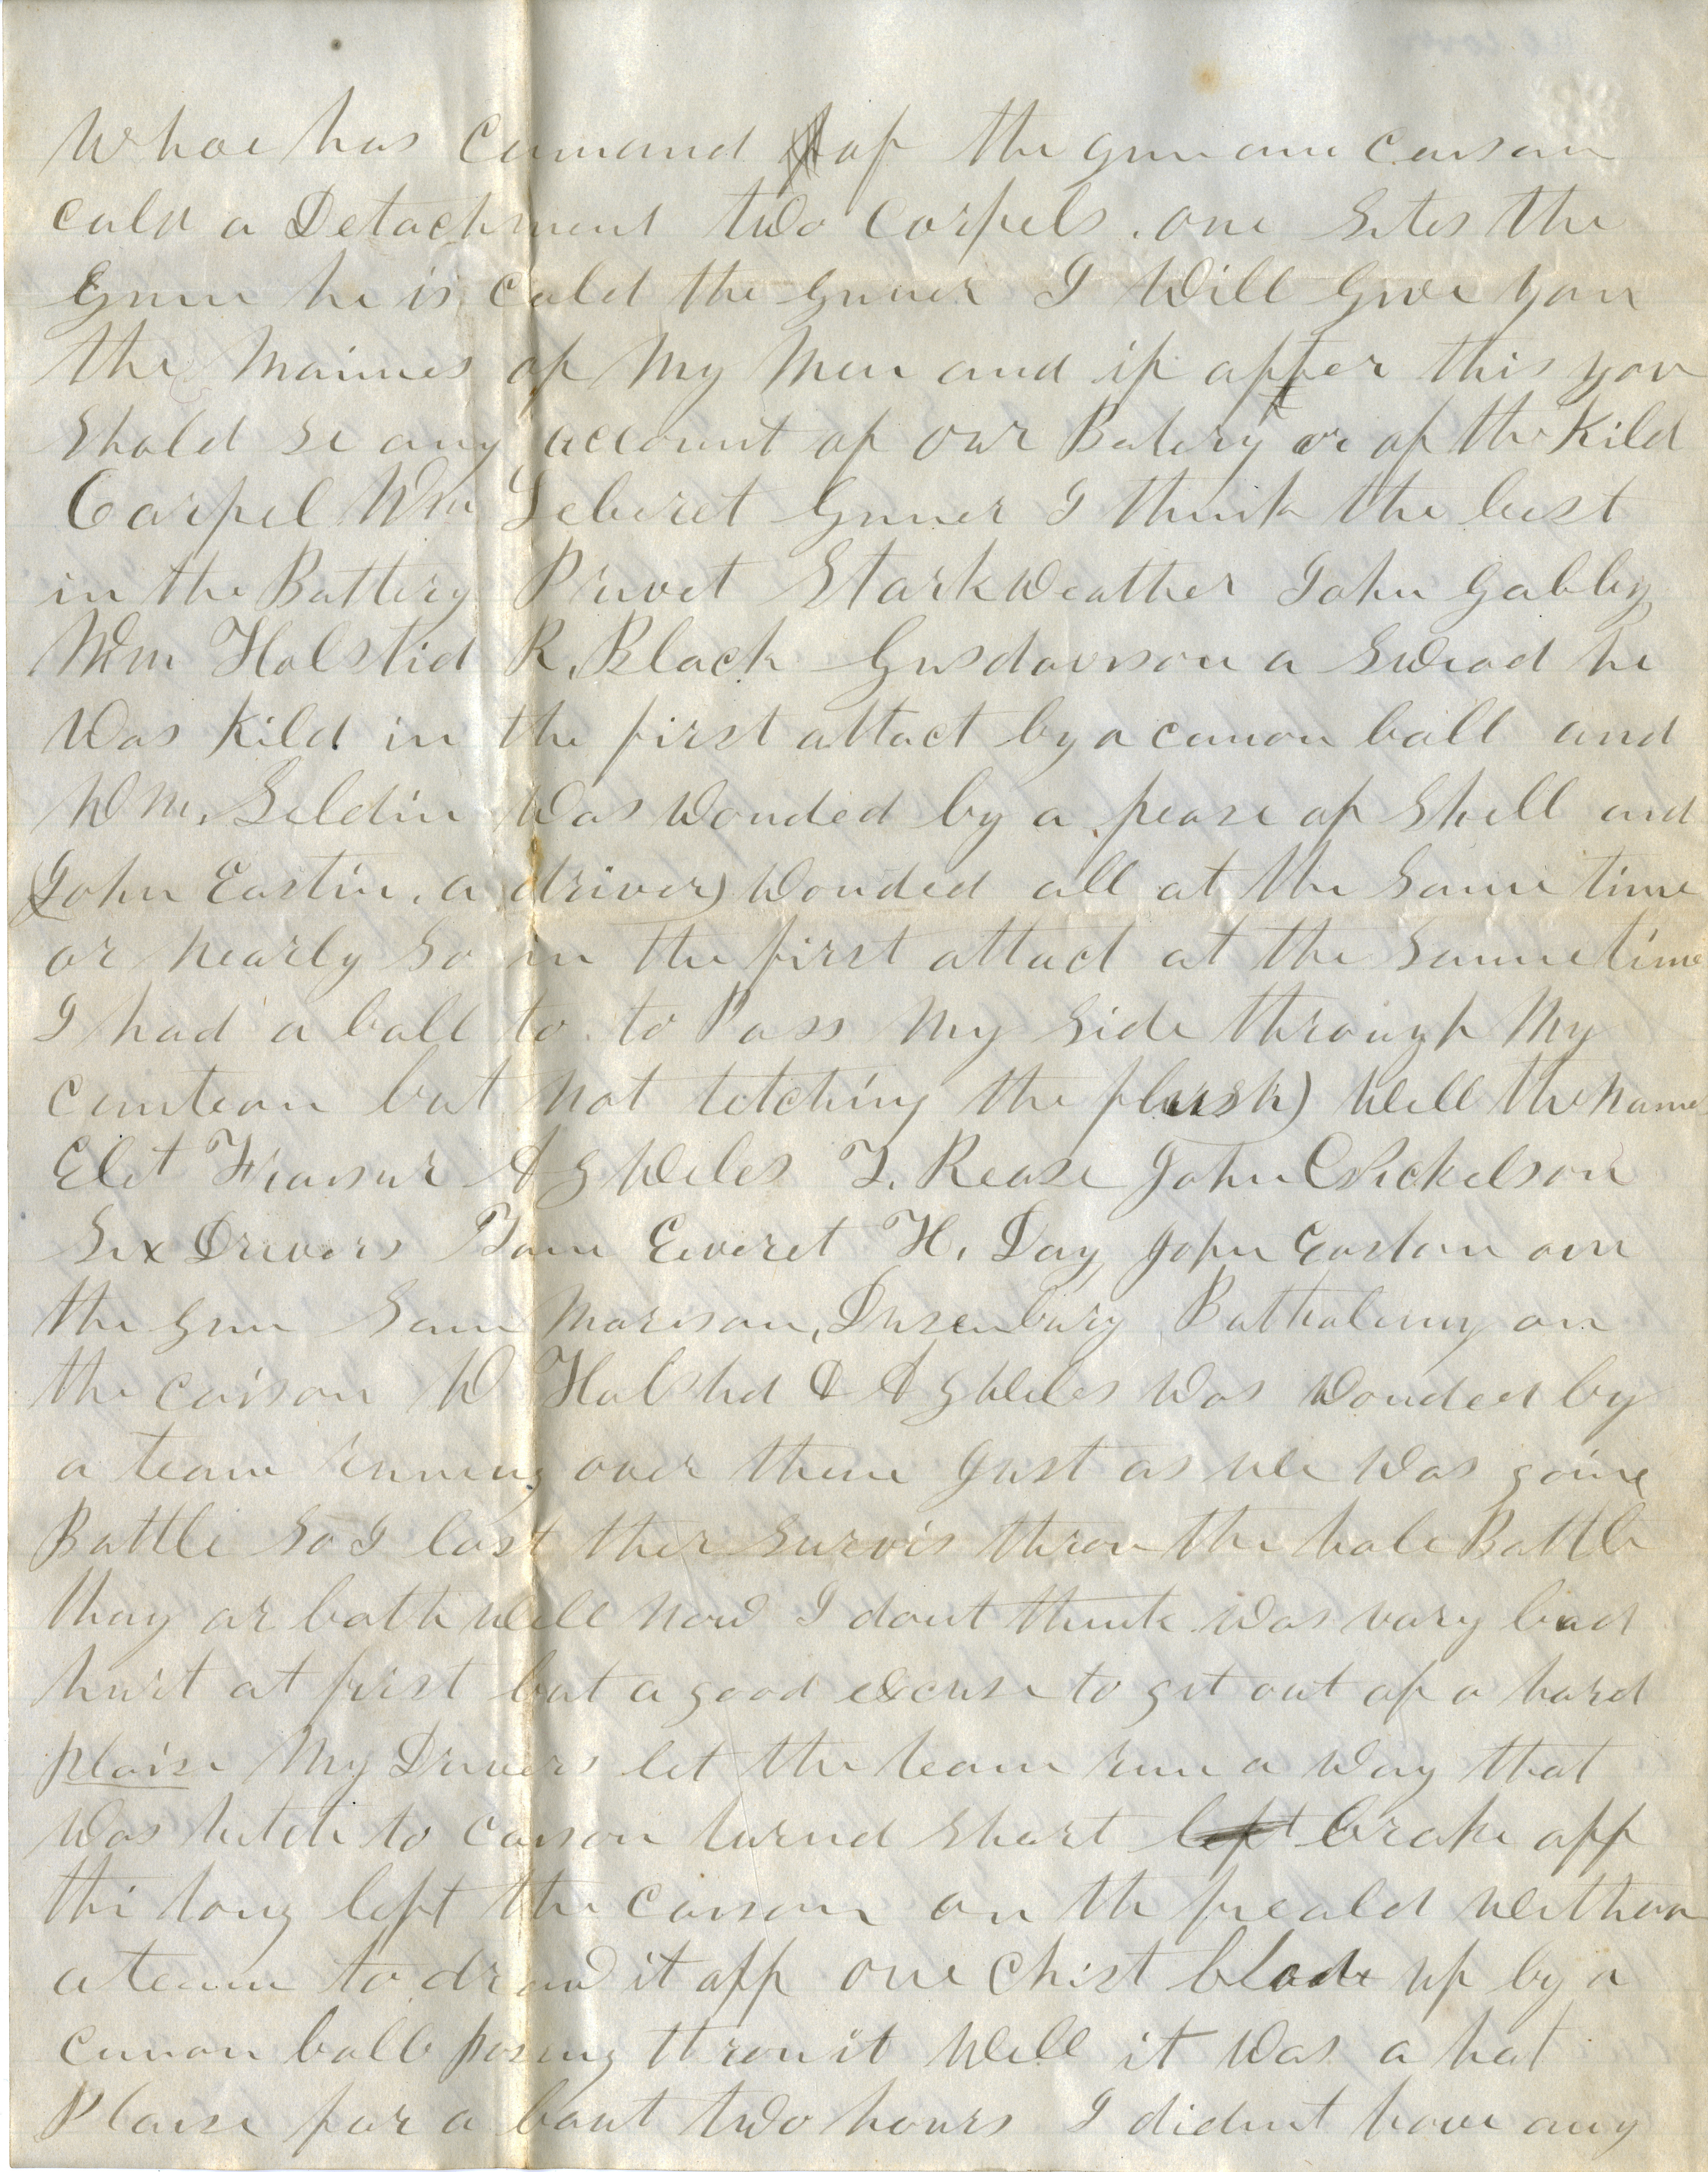 Whoe has Cumand of the gun ane Caisson
cald a Detachment two Corpels. one Sites the
Gunn he is cald the Gunner I Will Give you
the Naimes of My Men and if after this you
Shold Se any account of our Batery or of the Kild
Corpel Wm Leberet Gunner I think the best
in the Battery Privet Starkweather John Gabby
Wm Holstid R. Black Gusdavson a Swead he
Was Kild in the first attact by a canon ball and
Wm. Seldin Was Wonded by a pease of Shell and
(John Eastin. a driver) Wonded all at the Same time
or nearly So in the first attact at the Same time
I had a ball to to Pass My Side through My
cantean but Not tetching the flesh) Well the name
Elet Frasur A G Weles T. Rease John C Nickelson
Six Drivers Tom Everet H. Day John Easton on
the gun Sam Morison, Dusenbury Bathalemy on
the caison W Halsted & A G Weles Was Wonded by
a team runing over them Just as We Was going
Battle So I lost ther Survis throu the hole Battle
thay ar both Well now I dont think Was vary bad
hurt at first but a good excuse to get out of a hard
plaise My Drivers let the team run a Way that
Was hitch to caison turnd Short left brake off
the tong left the caison on the feald Without
a team to draw it off one Chist blode up by a
canon ball posing throu it Well it Was a hot
Plaise for a bout two hours I didnt have any